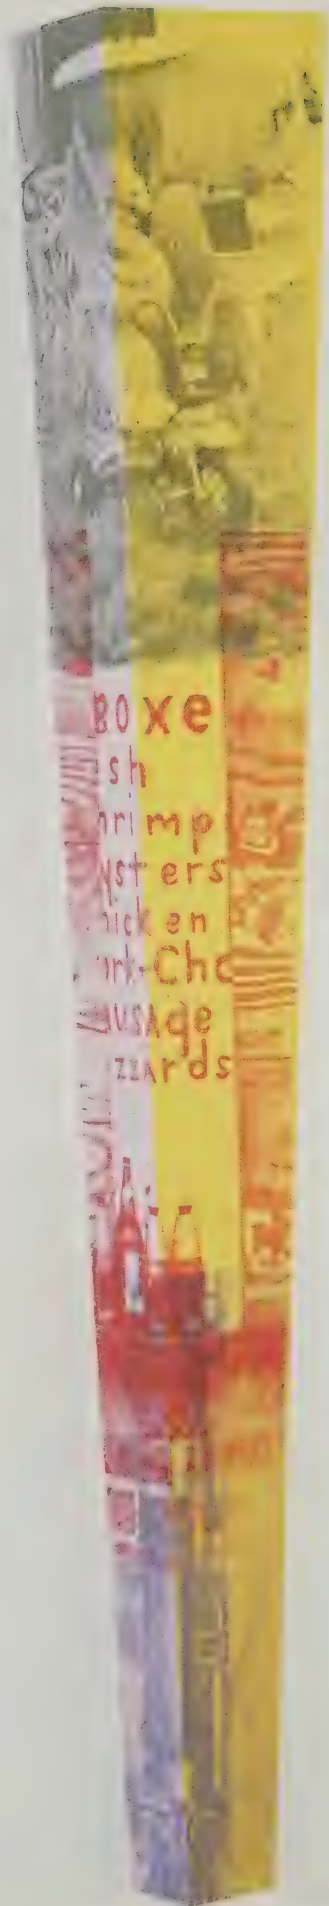 BOXe
sh
hrimp
ysters
hicken
ork-Cho
AUSAge
IZZArds